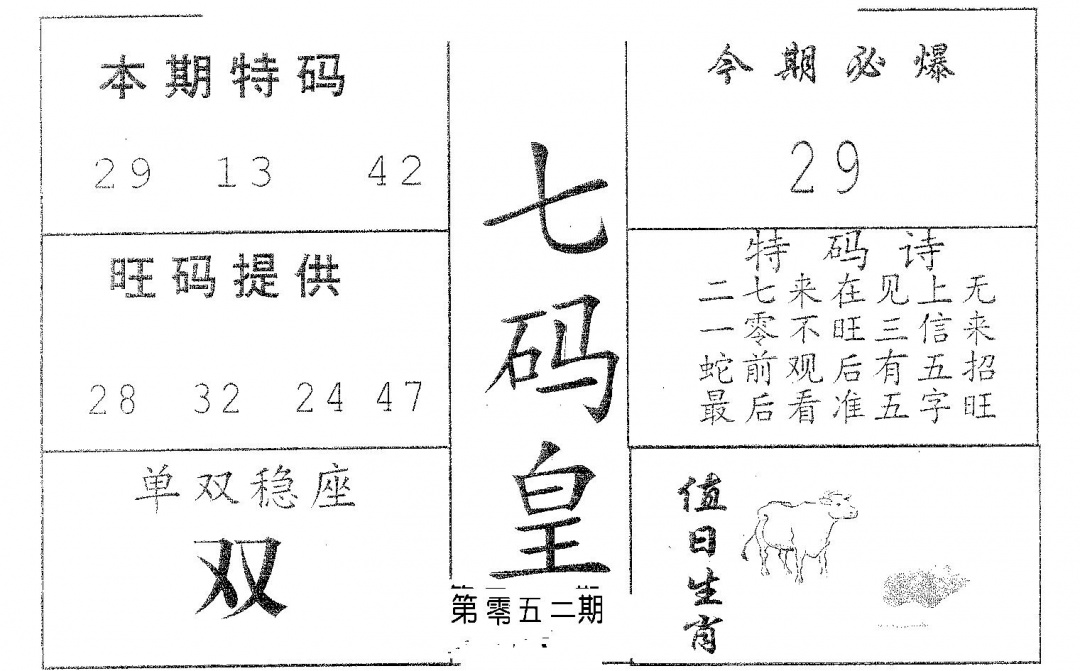 本期特码
29 13 42
旺码提供
28 32 24 47
单双稳座
双
七码皇
第零五二期
今期必爆
29
特码诗
二七来在见上无
一零不旺三信来
蛇前观后有五招
最后看准五字旺
值日生肖